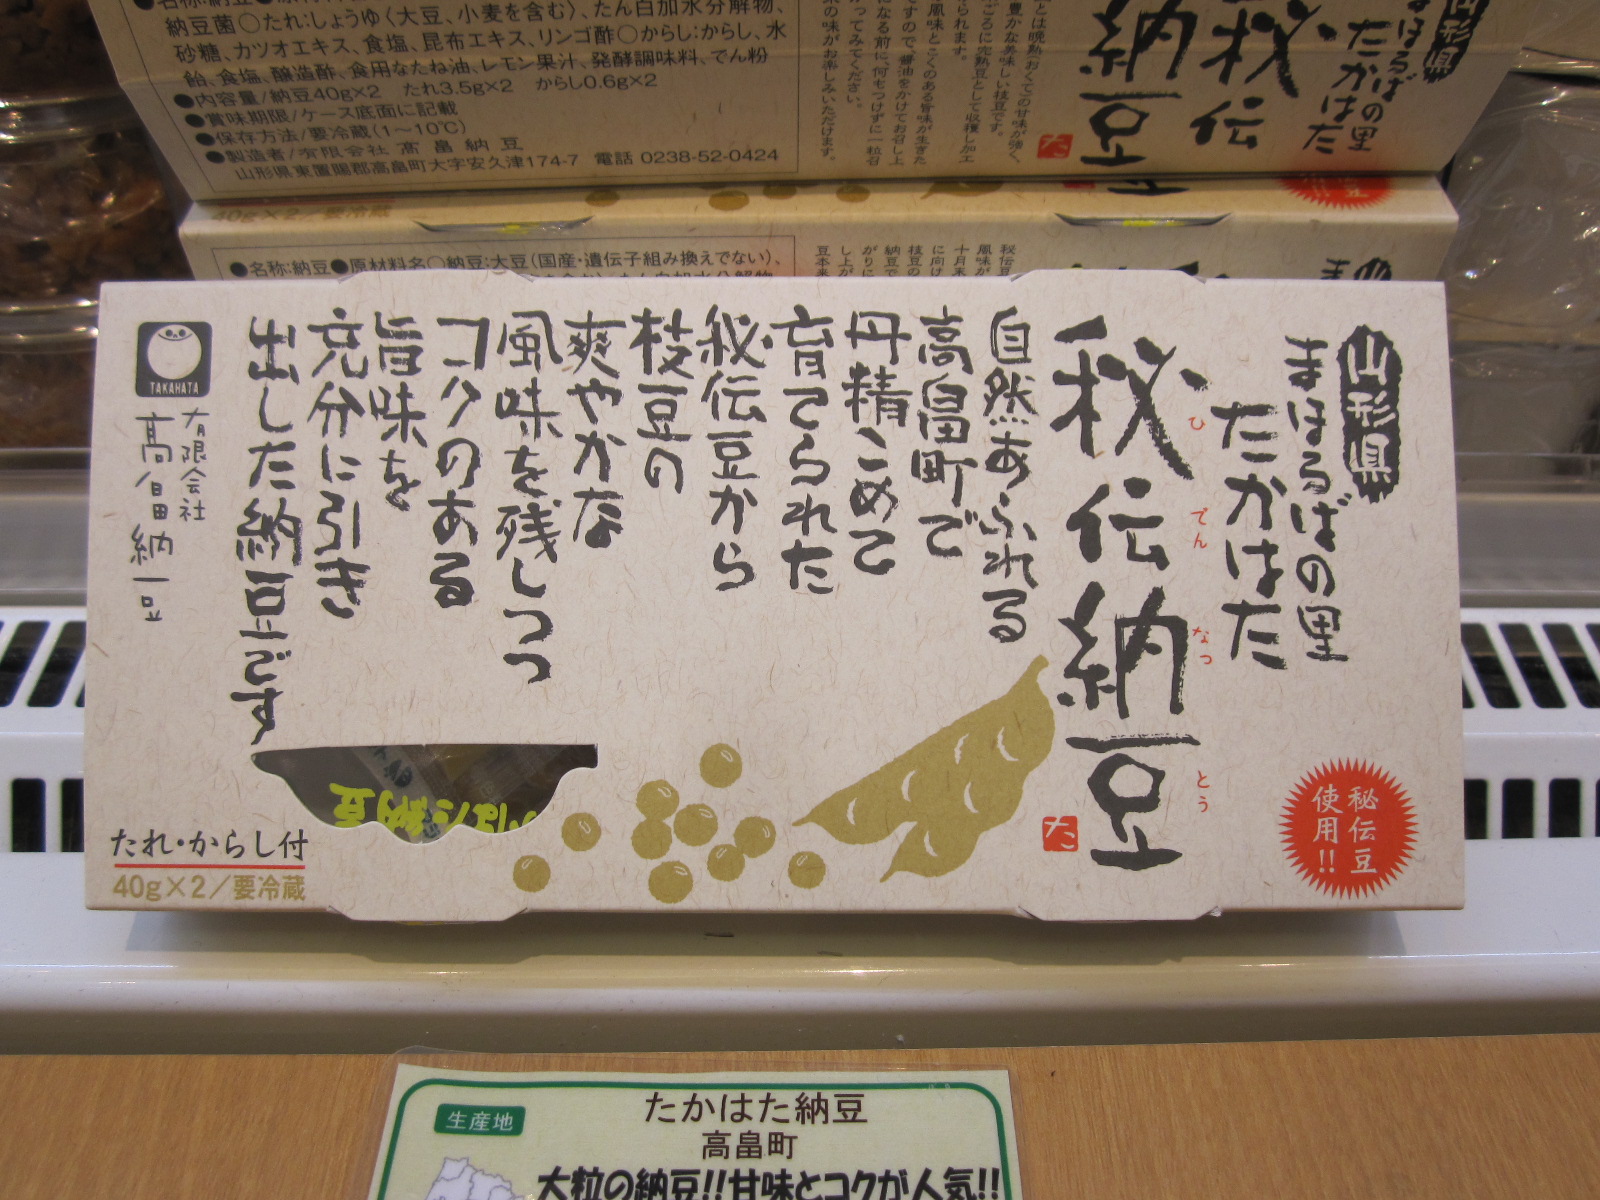 納豆菌○たれ:しょうゆ〈大豆、小麦を含む〉、たん白加水分解物、
砂糖、カツオエキス、食塩、昆布エキス、リンゴ酢○からし:からし、水
飴、食塩、醸造酢、食用なたね油、レモン果汁、発酵調味料、でん粉
●内容量/納豆40g×2 たれ3.5g×2 からし0.6g×2
●賞味期限/ケース底面に記載
●保存方法/要冷蔵(1〜10℃)
●製造者/有限会社 高畠納豆
山形県東置賜郡高畠町大字安久津174-7 電話 0238-52-0424
山形県
まほろばの里
たかはた
秘伝
納豆
た
40g×2/要冷蔵
●名称:納豆●原材料名○納豆:大豆(国産・遺伝子組み換えでない)、
山形県
まほろばの里
たかはた
秘伝納豆
ひでんなっとう
た
自然あふれる
高畠町で
丹精こめて
育てられた
秘伝豆から
枝豆の
爽やかな
風味を残しつつ
コクのある
旨味を
充分に引き
出した納豆です
TAKAHATA
有限会社
高畠納豆
たれ・からし付
40g×2/要冷蔵
秘伝豆
使用!!
生産地
たかはた納豆
高畠町
大粒の納豆!!甘味とコクが人気!!